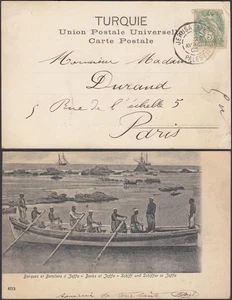 TURQUIE
Union Postale Universelle
Carte Postale
Monsieur Madame
Durand
5 Rue de l'échelle 5
Paris
Barques et Bateliers à Jaffa – Boats at Jaffa – Schiff und Schiffer in Jaffa